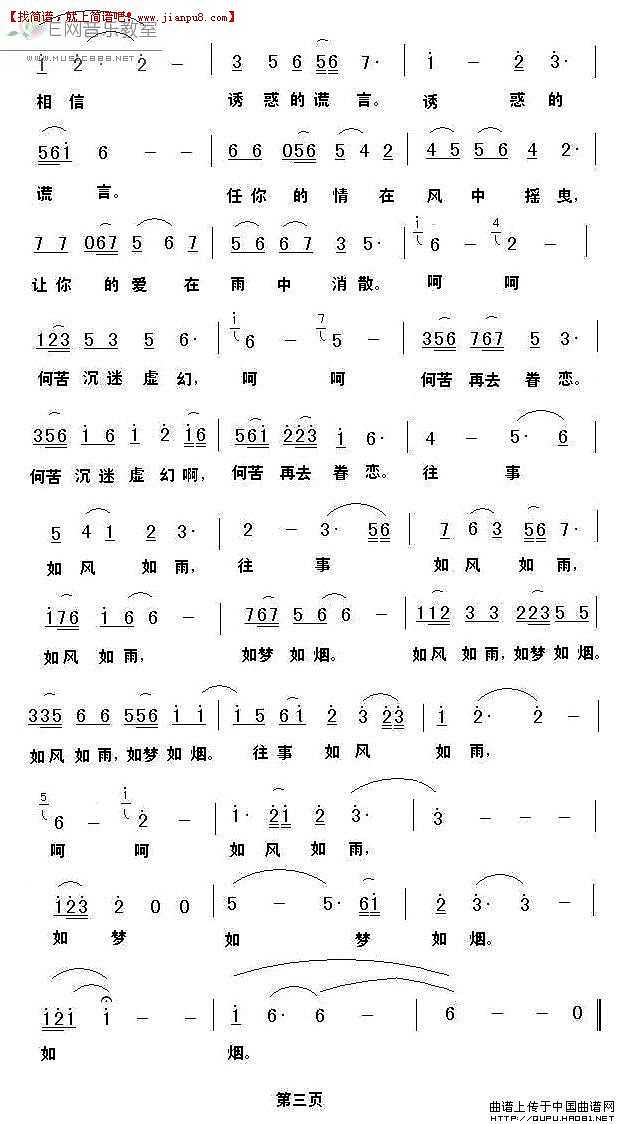 【找简谱，就上简谱吧！www.jianpu8.com】
E网音乐教室
www.music888.net
1 2· 2 - | 3 5 6 56 7· | 1 - 2 3·
相信 诱惑的谎言。诱 惑的
561 6 - - | 6 6 056 5 4 2 | 4 5 5 6 4 2·
谎言。 任你的情在风中摇曳，
7 7 067 5 6 7 | 5 6 6 7 3 5· | i 6 - 4 2 -
让你的爱在雨中消散。呵 呵
123 5 3 5 6· | i 6 - 7 5 - | 356 767 5 3·
何苦沉迷虚幻，呵 呵 何苦再去眷恋。
356 1 6 1 2 16 | 561 223 1 6· | 4 - 5· 6
何苦沉迷虚幻啊，何苦再去眷恋。往 事
5 4 1 2 3· | 2 - 3· 56 | 7 6 3 56 7·
如风 如雨，往 事 如风 如雨，
176 1 6 6 - | 767 5 6 6 - | 112 3 3 223 5 5
如风如雨， 如梦如烟。 如风如雨，如梦如烟。
335 6 6 556 1 1 | 1 5 61 2 3 23 | 1 2· 2 -
如风如雨，如梦如烟。 往事如风 如雨，
5 6 - i 2 - | 1· 21 2 3 | 3 - - -
呵 呵 如风如雨，
123 2 0 0 | 5 - 5· 61 | 2 3· 3 -
如梦 如 梦 如烟。
121 1 - - | 1 6· 6 - | 6 - - 0
如 烟。
第三页
曲谱上传于中国曲谱网
HTTP://QUPU.HAO81.NET